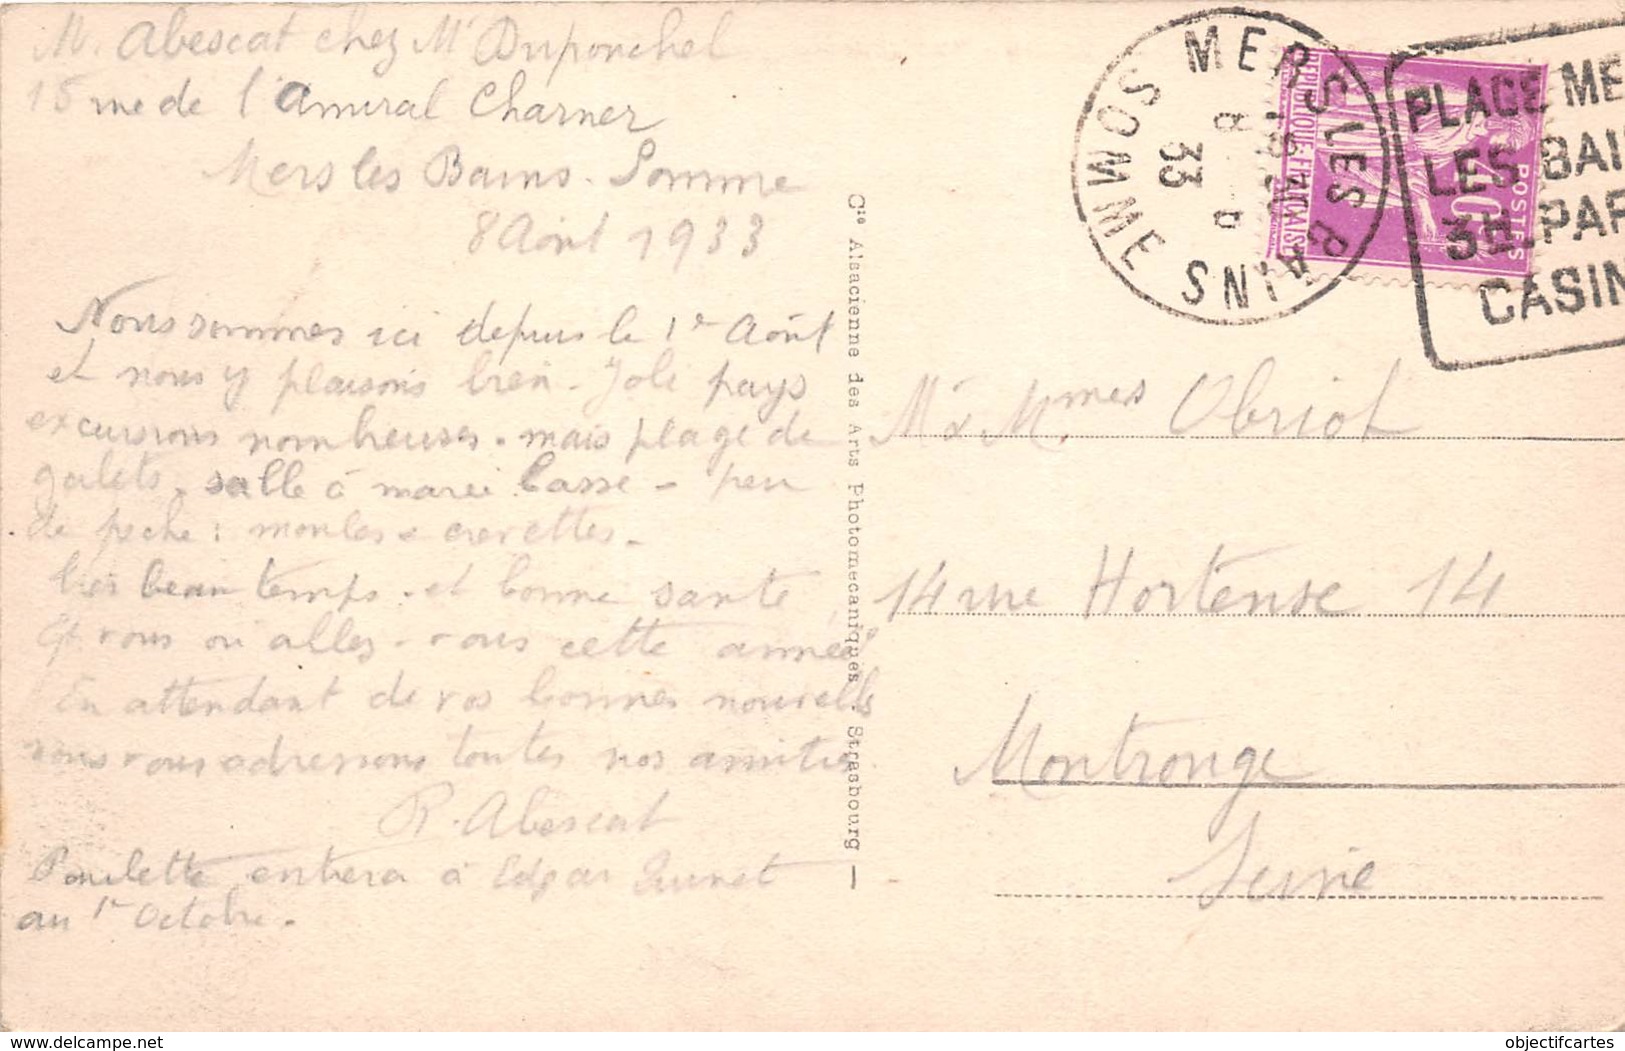 M. Abescat chez Mr Duponchel
15 rue de l'Amiral Charner
Mers les Bains. Somme
8 Août 1933
Nous sommes ici depuis le 1er Août
et nous y plaisons bien. Joli pays
excursions nombreuses. mais plage de
galets. sable à marée basse - peu
de peche : moules & crevettes.
tres beau temps. et bonne santé.
Et vous où allez-vous cette année
En attendant de vos bonnes nouvelles
nous vous adressons toutes nos amitiés
P. Abescat
Paulette entrera à Edgar Quinet
au 1er Octobre.
Cie Alsacienne des Arts Photomecaniques - Strasbourg
MERS LES BAINS
SOMME
8 - 8
33
REPUBLIQUE FRANÇAISE
POSTES
40c
PLAGE ME
LES BAI
3H.PAR
CASIN
Mr & M.mes Obriot
14 rue Hortense 14
Montrouge
Seine
www.delcampe.net
objectifcartes